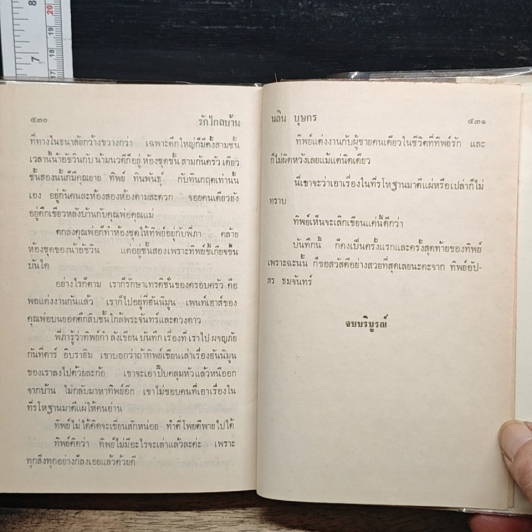 ๕๓๐ รักไกลบ้าน
ที่ทางในขนาลือกว้างขวางกว่า เฉพาะตึกใหญ่ก็มีตั้งสามชั้น
เวลานั้นน้าอ้ชวินกับ น้ามนวดีก็อยู่ ห้องชุดชั้น สามกันครัวเดียว
ชั้นสองนั้นก็มีคุณอาย ทิพย์ ทินพันธุ์ กับทินกฤตเท่านั้น
เอง อยู่กันคนละห้องสองห้องตามสะดวก จอยคนเดียวยัง
อยู่ตึกเขียวหลังบ้านกับคุณพ่อคุณแม่
ตกลงคุณพ่อก็ทำห้องชุดให้ทิพย์อยู่กับพีภา คล้าย
ห้องชุดของน้าอ้ชวิน แต่อยู่ชั้นสองเพราะทิพย์ขี้เกียจขึ้น
บันได
อย่างไรก็ตาม เราก็รักษาเทรดิชั่นของครอบครัว คือ
พอแต่งงานกันแล้ว เราก็ไปอยู่ที่ฮันนีมูน เพนท์เฮาส์ของ
คุณพ่อบนยอดตึกสิบชั้นใกล้พระจันทร์และดวงดาว
พีภารู้ว่าทิพย์กำลังเขียน บันทึก เรื่องที่ เราไป ผจญภัย
กันที่คาร์ อิบราฮิม เขาบอกว่าถ้าทิพย์เขียนเล่าเรื่องฮันนีมูน
ของเราลงไปด้วยละก้อ เขาจะเอาปี๊บคลุมหัวแล้วหนีออก
จากบ้าน ไม่กลับมาหาทิพย์อีก เขาไม่ชอบคนที่เอาเรื่องใน
ที่รโหฐานมาตีแผ่ให้คนอ่าน
ทิพย์ไม่ได้คิดจะเขียนสักหน่อย ทำดีโพยตีพายไปได้
ทิพย์คิดว่า ทิพย์ไม่มีอะไรจะเล่าแล้วละค่ะ เพราะ
ทุกสิ่งทุกอย่างก็ลงเอยแล้วด้วยดี
นลิน บุษกร ๕๓๑
ทิพย์แต่งงานกับผู้ชายคนเดียวในชีวิตที่ทิพย์รัก และ
ก็ไม่ผิดหวังเลยแม้แต่นิดเดียว
นี่เขาจะว่าเอาเรื่องในที่รโหฐานมาตีแผ่หรือเปล่าก็ไม่
ทราบ
ทิพย์เห็นจะเลิกเขียนแค่นี้ดีกว่า
บันทึกนี้ ก็คงเป็นครั้งแรกและครั้งสุดท้ายของทิพย์
เพราะฉะนั้น ก็ขอสวัสดีอย่างสวยที่สุดเลยนะคะจาก ทิพย์อัป-
สร ชมจันทร์
จบบริบูรณ์